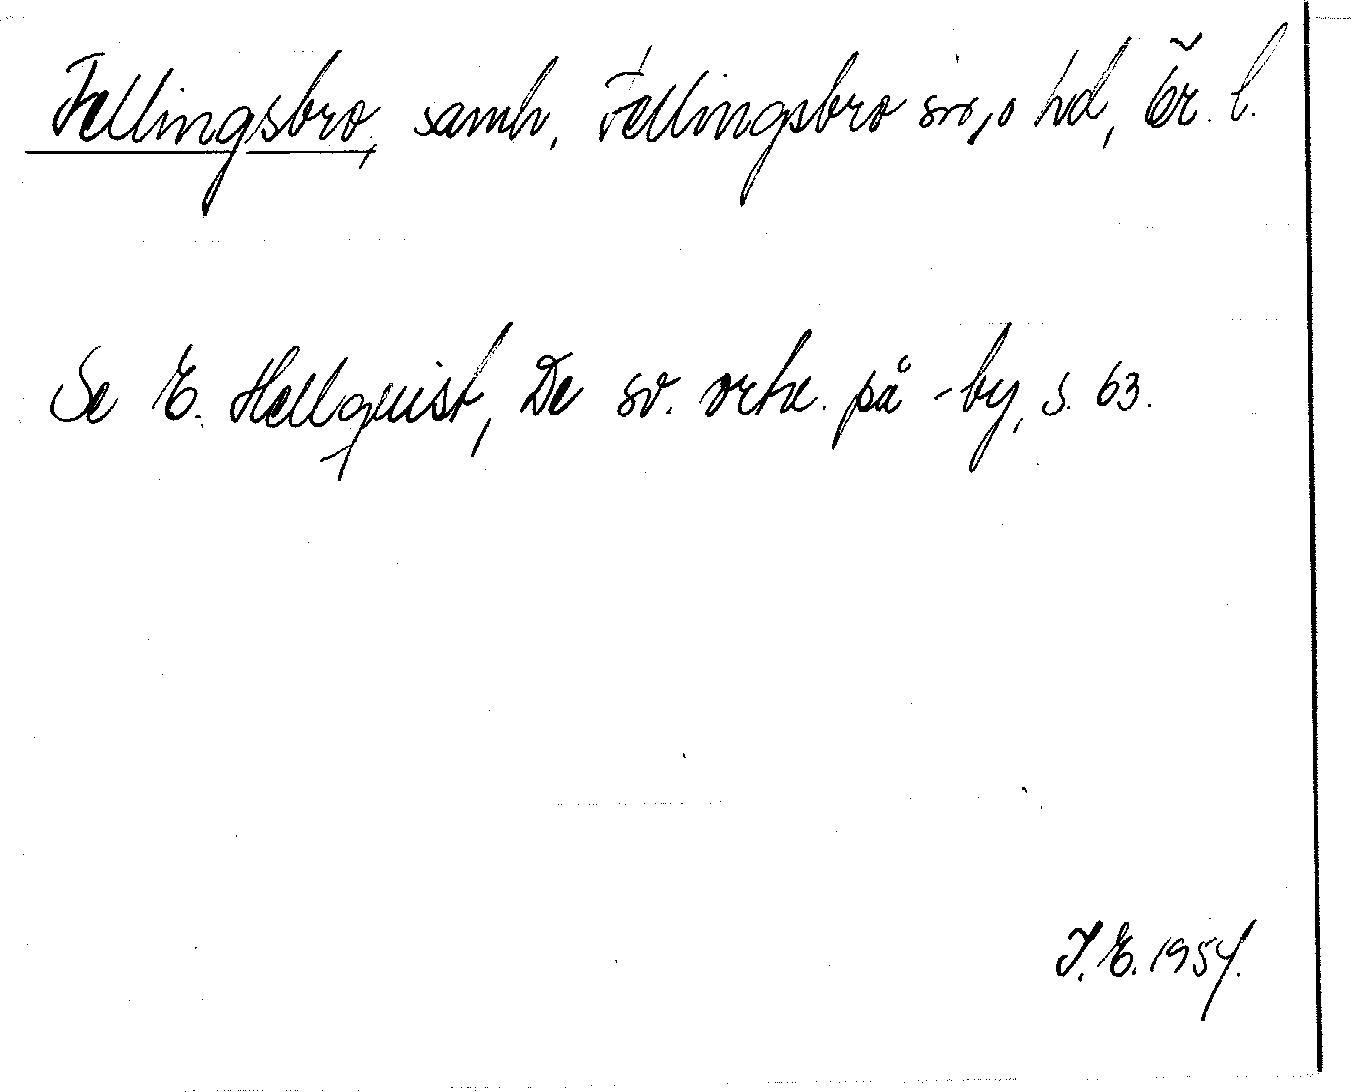 Fellingsbro, samh, Fellingsbro sn, o hd, Ör. l.
Se E. Hellquist, De sv. ortn. på -by, s. 63.
I. E. 1954.